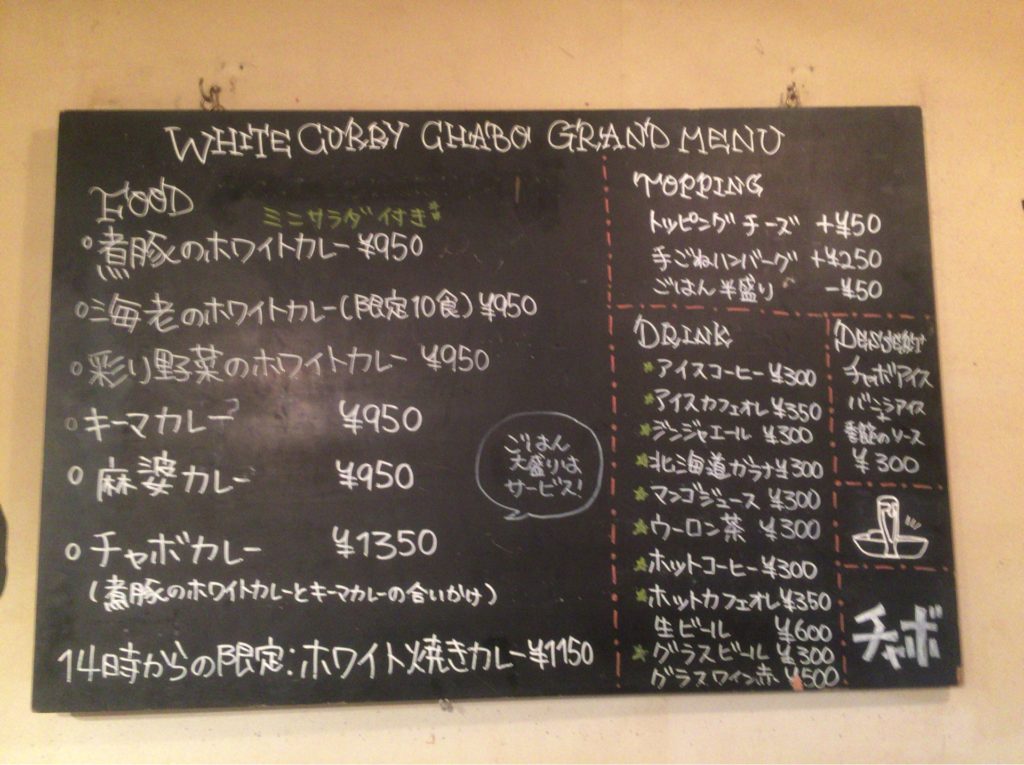 WHITE CURRY CHABO GRAND MENU
FOOD
ミニサラダ付き
煮豚のホワイトカレー ¥950
海老のホワイトカレー(限定10食) ¥950
彩り野菜のホワイトカレー ¥950
キーマカレー ¥950
麻婆カレー ¥950
チャボカレー ¥1350
(煮豚のホワイトカレーとキーマカレーの合いかけ)
14時からの限定:ホワイト焼きカレー ¥1150
ごはん
大盛りは
サービス!
TOPPING
トッピングチーズ +¥50
手ごねハンバーグ +¥250
ごはん半盛り -¥50
DRINK
アイスコーヒー ¥300
アイスカフェオレ ¥350
ジンジャエール ¥300
北海道ガラナ ¥300
マンゴジュース ¥300
ウーロン茶 ¥300
ホットコーヒー ¥300
ホットカフェオレ ¥350
生ビール ¥600
グラスビール ¥300
グラスワイン赤 ¥500
DESSERT
チャボアイス
バニラアイス
と
季節のソース
¥300
チャボ